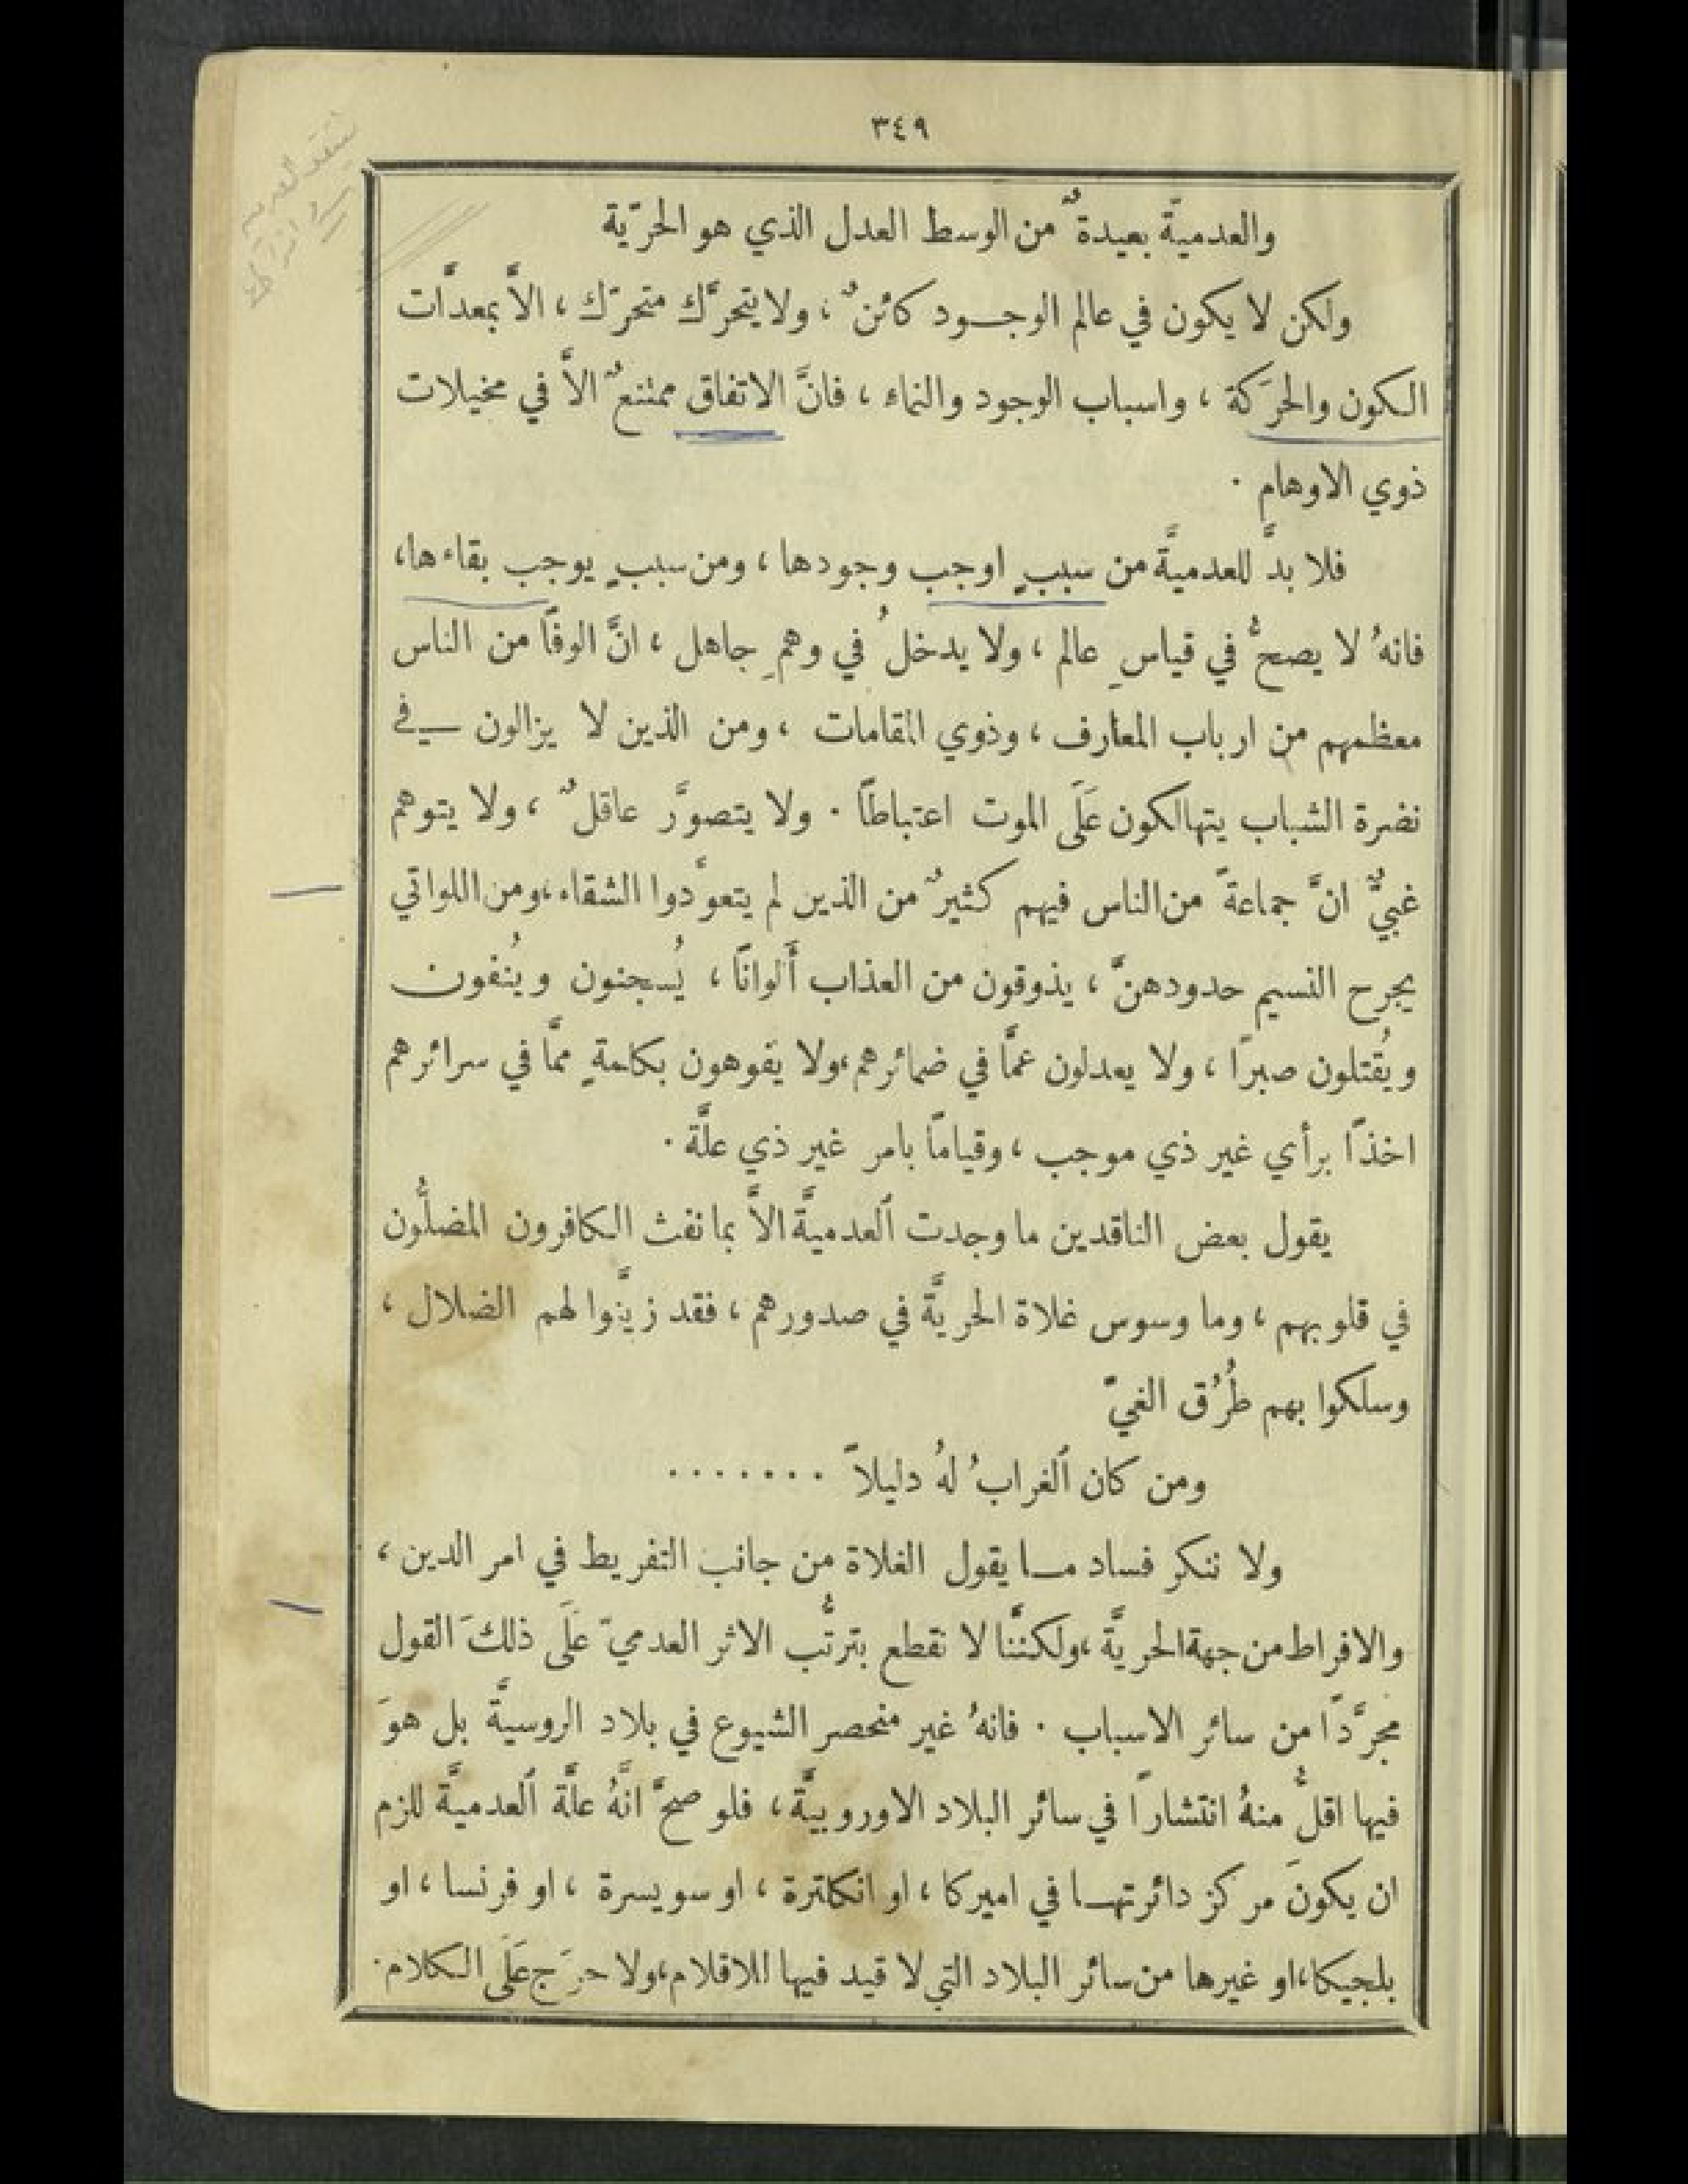 ٣٤٩
والعدميَّة بعيدةٌ من الوسط العدل الذي هو الحرّية
ولكن لا يكون في عالم الوجود كائنٌ ، ولا يتحرَّك متحرّك ، الاَّ بمعدَّات
الكون والحرَكة ، واسباب الوجود والنماء ، فانَّ الاتفاق ممتنعٌ الاَّ في مخيلات
ذوي الاوهام ٠
فلا بدَّ للعدميَّة من سببٍ اوجب وجودها ، ومن سببٍ يوجب بقاءها ،
فانهُ لا يصحُّ في قياسِ عالم ، ولا يدخلُ في وهمِ جاهل ، انَّ الوفًا من الناس
معظمهم من ارباب المعارف ، وذوي المقامات ، ومن الذين لا يزالون في
نضرة الشباب يتهالكون عَلَى الموت اعتباطًا ٠ ولا يتصوَّر عاقلٌ ، ولا يتوهم
غبيٌّ انَّ جماعةً من الناس فيهم كثيرٌ من الذين لم يتعوَّدوا الشقاء ، ومن اللواتي
يجرح النسيم حدودهنَّ ، يذوقون من العذاب أَلوانًا ، يُسجنون ويُنفون
ويُقتلون صبرًا ، ولا يعدلون عمَّا في ضمائرهم ، ولا يفوهون بكلمةٍ ممَّا في سرائرهم
اخذًا برأي غير ذي موجب ، وقيامًا بامر غير ذي علَّة ٠
يقول بعض الناقدين ما وجدت ٱلعدميَّة الاَّ بما نفث الكافرون المضلُّون
في قلوبهم ، وما وسوس غلاة الحريَّة في صدورهم ، فقد زيَّنوا لهم الضلال ،
وسلكوا بهم طُرُق الغيّ
ومن كان ٱلغرابُ لهُ دليلاً ٠٠٠٠٠٠٠
ولا ننكر فساد ما يقول الغلاة من جانب التفريط في امر الدين ،
والافراط من جهة الحريَّة ، ولكنَّنا لا نقطع بترتُّب الاثر العدميّ عَلَى ذلكَ القول
مجرَّدًا من سائر الاسباب ٠ فانهُ غير منحصر الشيوع في بلاد الروسيَّة بل هوَ
فيها اقلُّ منهُ انتشارًا في سائر البلاد الاوروبيَّة ، فلو صحَّ انَّهُ علَّة ٱلعدميَّة للزم
ان يكونَ مركز دائرتها في اميركا ، او انكلترة ، او سويسرة ، او فرنسا ، او
بلجيكا ، او غيرها من سائر البلاد التي لا قيد فيها للاقلام ، ولا حرَج عَلَى الكلام ٠